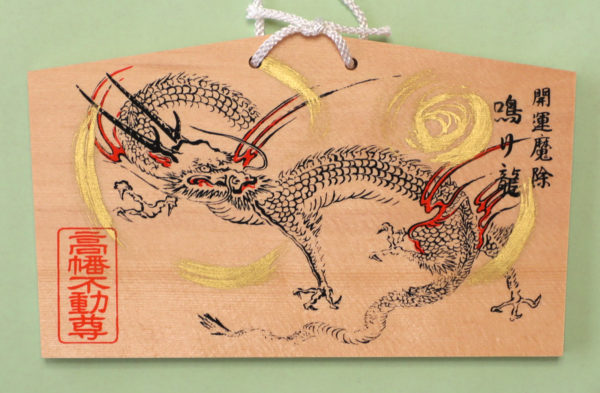 開運魔除
鳴り龍
高幡不動尊